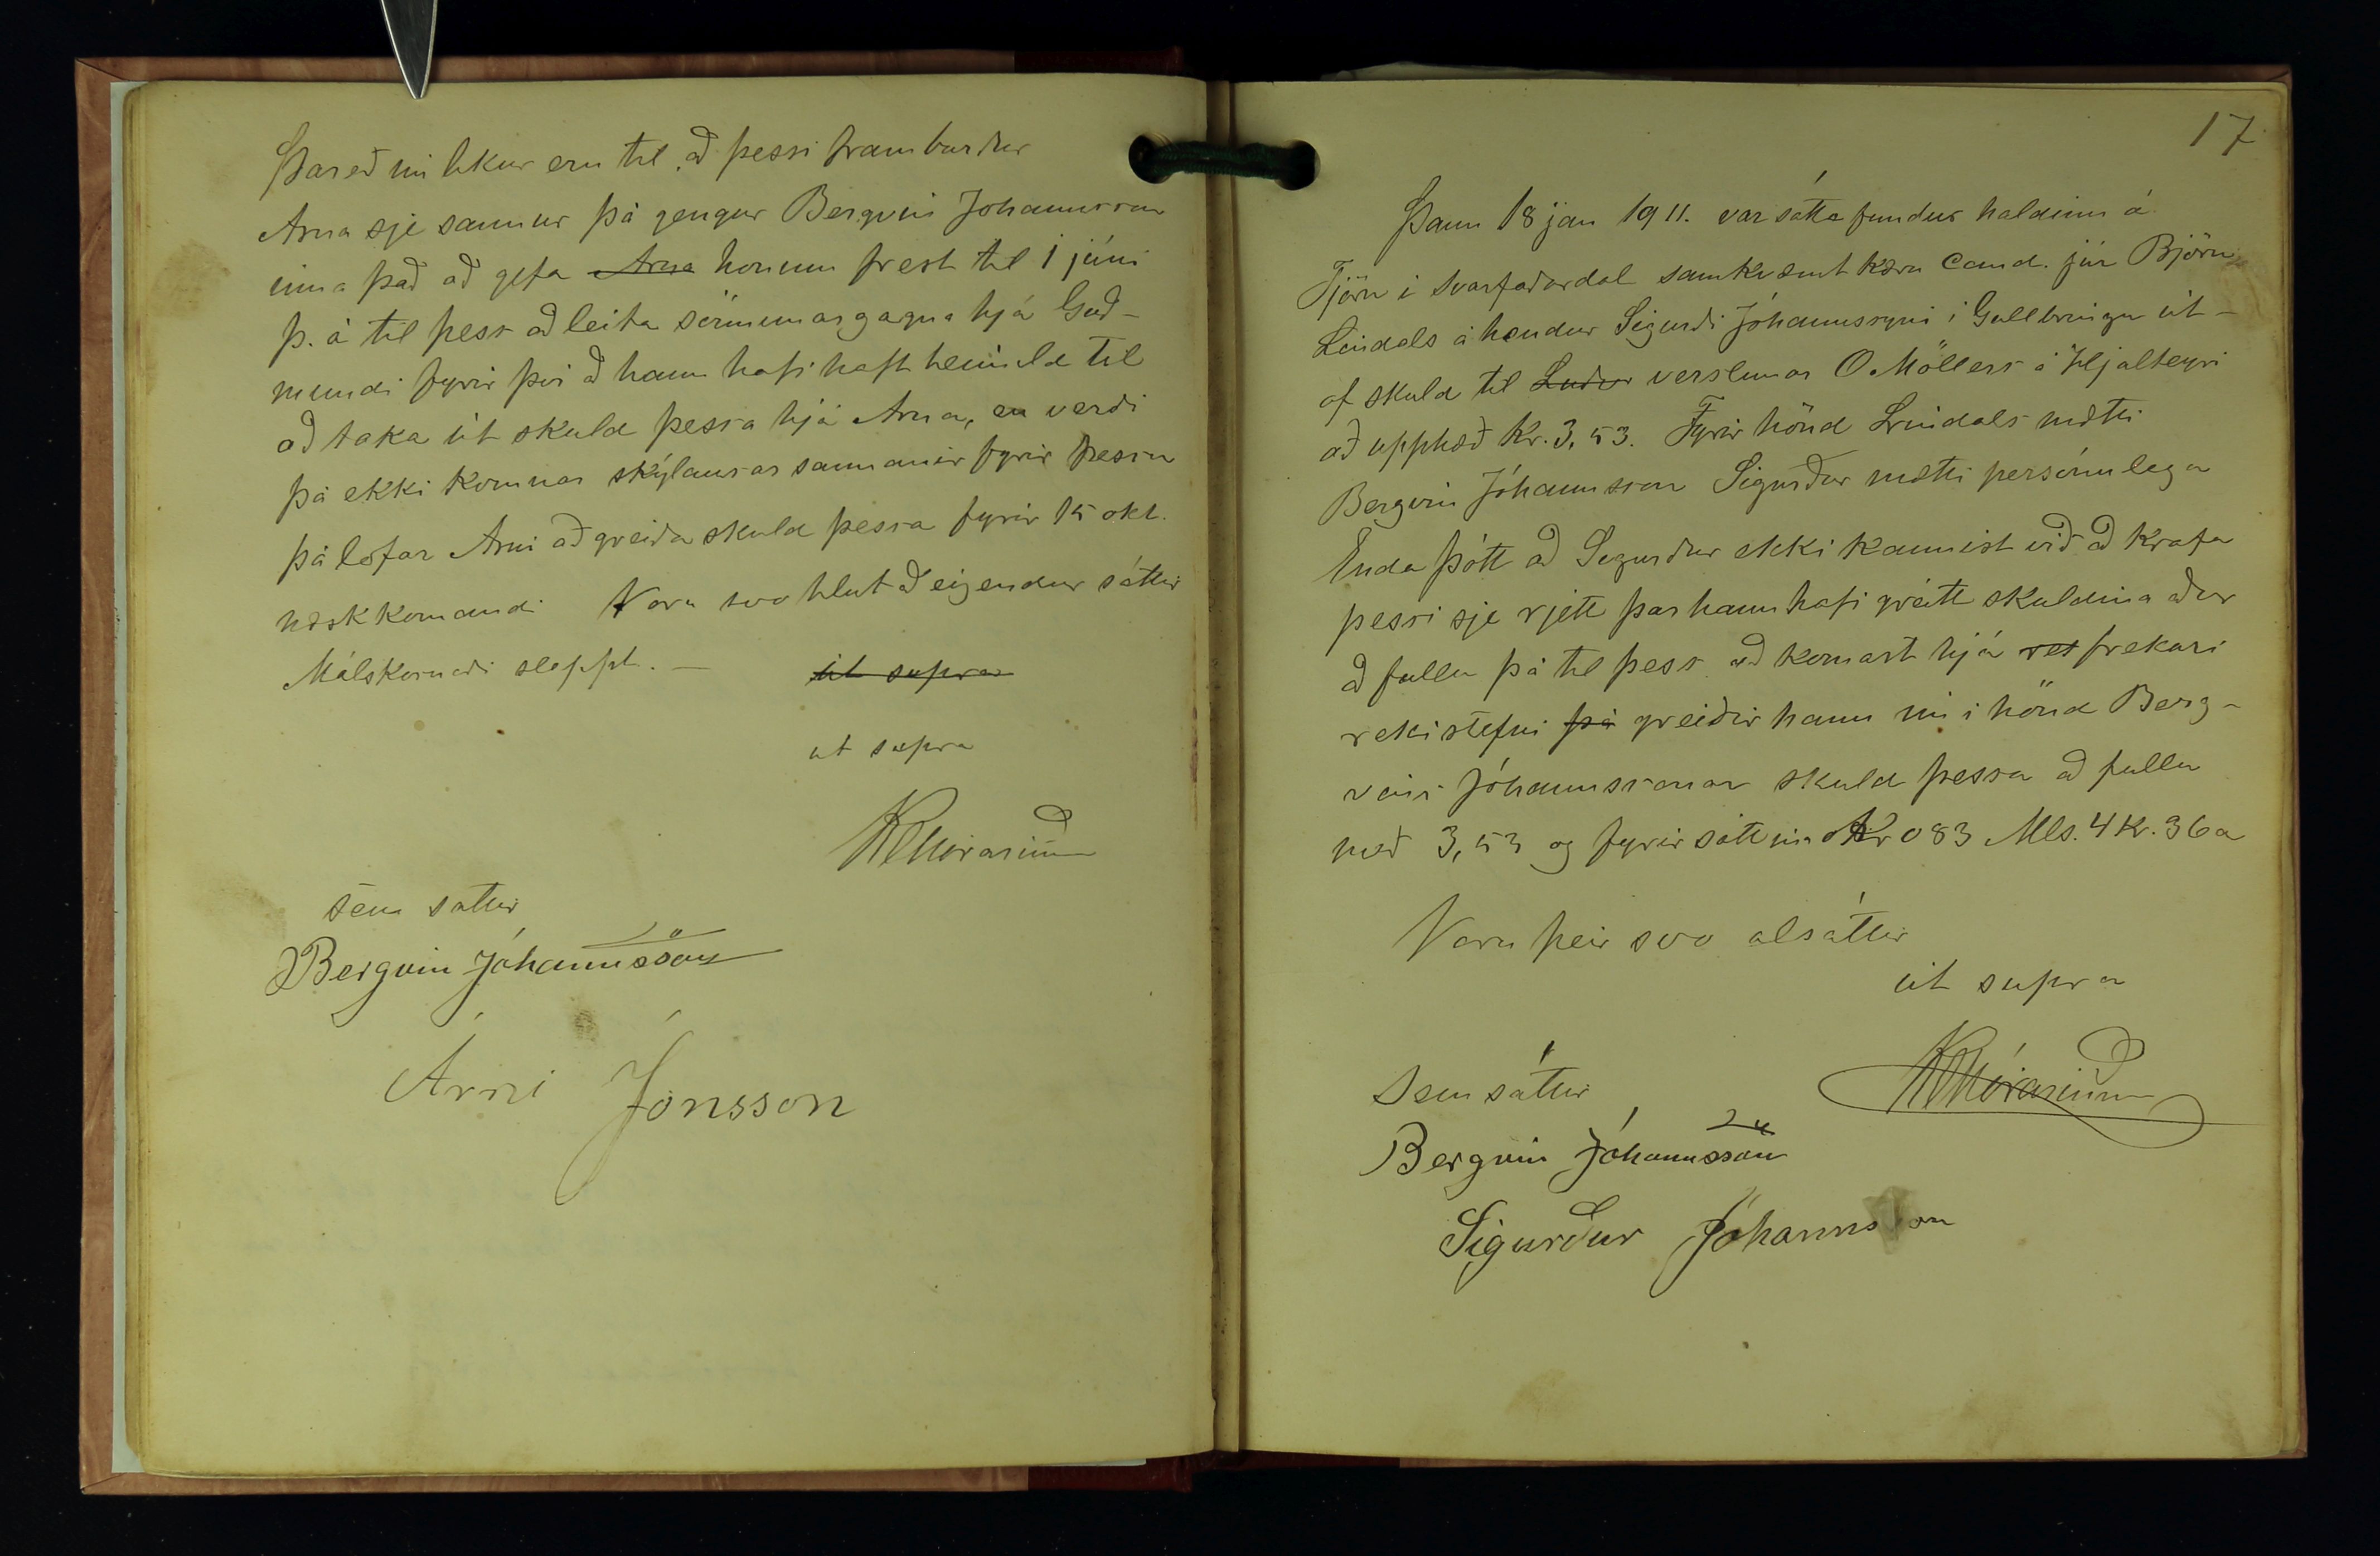 Þareð nú likur eru til að þessi framburður
Arna sje sannur þá gengur Bergvin Jóhannsson
inna það að gefa Arna honum frest til 1 júni
þ. á til þess að leita sönnunargagna hjá Guð-
mundi fyrir þvi að hann hafi haft heimild til
að taka út skuld þessa hjá Arna, en verði
þá ekki komnar skýlausar sannanir fyrir þessu
þá lofar Arni að greiða skuld þessa fyrir 15 okt.
næstkomandi Voru svo hlutaðeigendur sáttir
Málskosnaði sleppt. — út supra
ut supra
KrEldjárn Þórarinsson
sem sáttir
Bergvin Jóhannsson
Árni Jónsson
17
Þann 18 jan 1911. var sáttafundur haldinn á
Tjörn i Svarfaðardal samkvæmt kæru Cand. júr Björn
Lindals á hendur Sigurði Jóhannssyni i Gullbringu út-
af skuld til Luður verslunar O. Möllers á Hjalteyri
að upphæð Kr. 3,53. Fyrir hönd Lindals mætti
Bergvin Jóhannsson Sigurður mætti persónulega
Enda þótt að Sigurður ekki kannist við að krafa
þessi sje rjett þar hann hafi greitt skuldina aður
að fullu þá til þess að komast hjá ret frekari
rekistefni þá greiðir hann nú i hönd Berg-
vins Jóhannssonar skuld þessa að fullu
með 3,53 og fyrir sáttina Kr 0 83 Mls. 4 Kr. 36 a
Voru þeir svo alsáttir
út supra
Sem sáttir
Bergvin Jóhannsson
Sigurður Jóhannsson